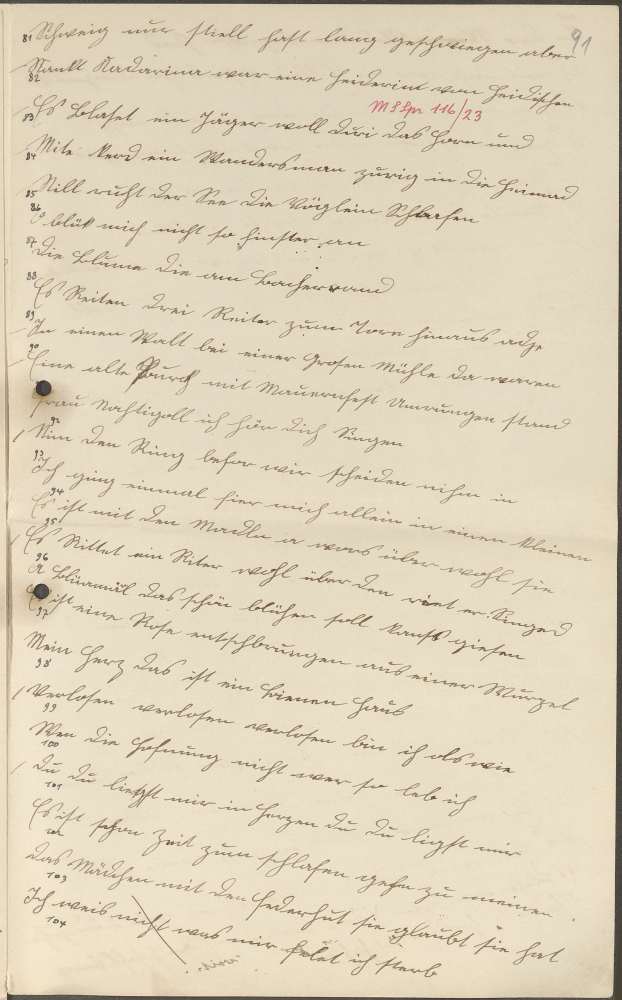 91
81 Schweig nur still hast lang geschwiegen aber
82 Sankt Kadarina war eine Heiderint von Heidischen
M S Spr 116/23
83 Es Blaset ein Jäger woll duri das Horn und
84 Mite kerd ein Wandersman zurig in die Heimad
85 Still ruht der See die Vöglein Schlaafen
86 O blük mich nicht so finster an
87 die Blume die am Bacherrand
88 Es Reiten drei Reiter zum Tore hinaus adje
89 In einen Walt bei einer Grosen Mühle da waren
90 Eine alte Burch mit Mauernfest Umrungen stand
Frau Nachtigall ich hör dich Singen
92 Nim den Ring befor wir scheiden nihm in
93 Ich ging einmal hier mich allein in einen kleinen
94 Es ist mit den Madln a wars über wohl sie
95 Es Rittet ein Riter wohl über den riet er Singed
96 A Blüamäl das schön blühen soll kansts giesen
97 Es ist eine Rose entschbrungen aus einer Wurzel
98 Mein Herz das ist ein Bienen Haus
99 Verlosen verlosen verlosen bin ich als wie
100 Wen die Hofnung nicht wer so leb ich
101 Du Du liegst mir in Herzen Du Du ligst mir
102 Es ist schon Zeit zum schlafen gehn zu meinen
103 Das Mädchen mit den Federhut sie glaubt sie hat
104 Ich weis nicht was mir felet ich sterb